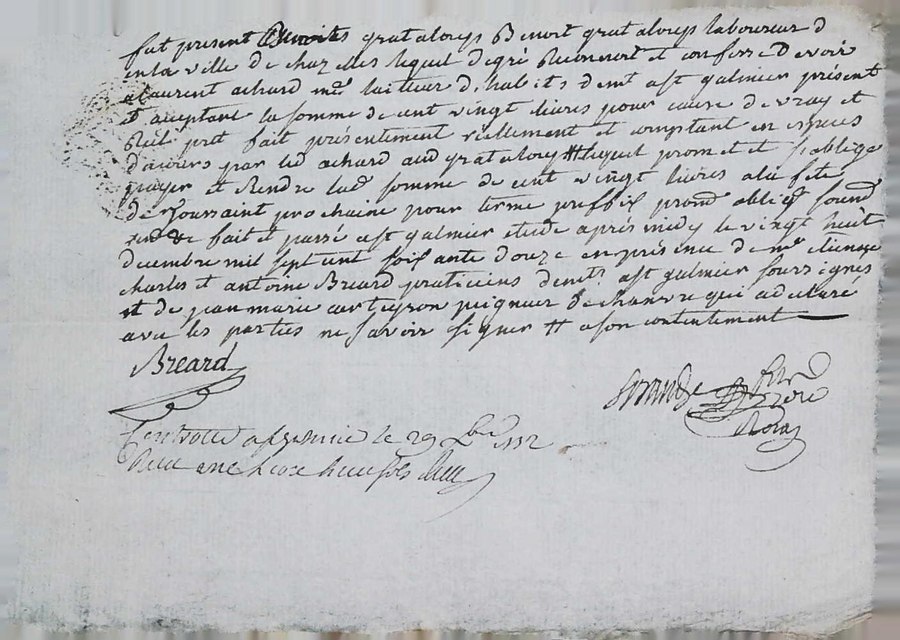 fut present Benoit grataloup Benoit grataloup laboureur d
en la ville de chazelles lequel de gré Reconnoit et confesse devoir
a laurent achard mᵉ tailleur d'habits demt a st galmier présent
et aceptant la somme de cent vingt livres pour cause de vray et
Réel pret fait présentement réellement et comptant en espèces
par led achard aud grataloup # lequel promet et s'oblige
payer et Rendre lad somme de cent vingt livres a la fete
de Toussaint prochaine pour terme preffix promt oblign soumn
fait et passé a st galmier etude après midy le vingt heuit
decembre mil sept cent soixante douze en présence de mᵉ
charles et antoine Breard praticiens demts a st galmier soussignés
et de jean marie peigneur de chanvre qui a declaré
avec les parties ne savoir signer # a son contentement
Breard
le 29 xbre 1772
Reçu une livre huit sols